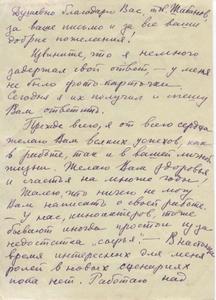 Душевно благодарю Вас, т.
за Ваше письмо и за все ваши
добрые пожелания!
Извините, что я немного
задержал свой ответ, – у меня
не было фото-карточки.
Сегодня я их получил и спешу
Вам ответить.
Прежде всего, я от всего сердца
желаю Вам всяких успехов, как
в работе, так и в вашей личной
жизни. Желаю Вам здоровья
и счастья на многие годы.
Жалею, что ничего не могу
Вам написать о своей работе.
– У нас, киноактеров, тоже
бывают иногда простои из-за
недостатка "сырья". В настоящее
время интересных для меня
ролей в новых сценариях
пока нет. Работаю над